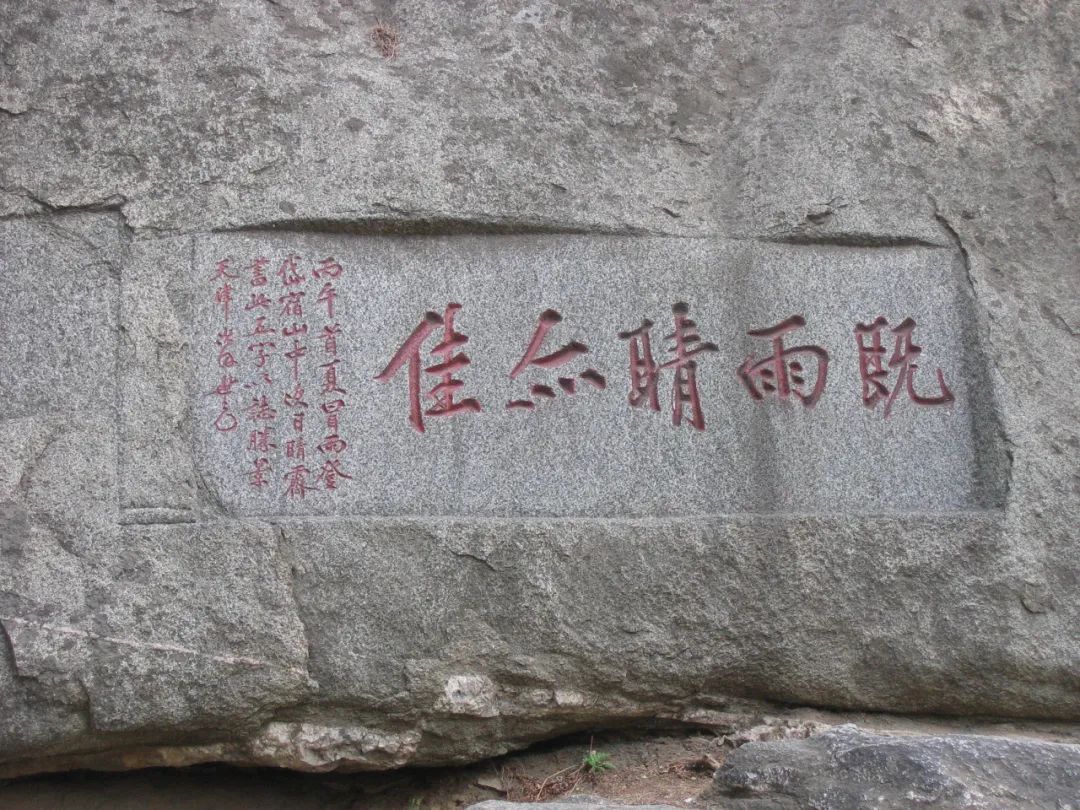 既雨晴亦佳
丙午首夏冒雨登
岱宿山中次日晴霽
書此五字以誌勝景
天津徐世光